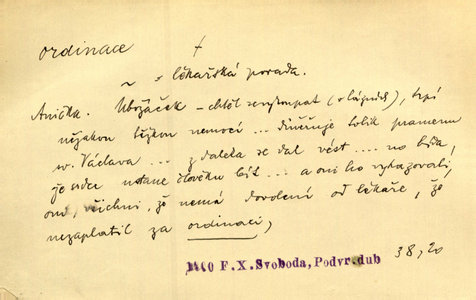 ordinace †
~ = lékařská porada.
Anička. Ubožáček – chtěl se vykoupat (v lázních), trpí
nějakou těžkou nemocí ... důvěřuje tolik prameni
sv. Václava ... z daleka se dal vést .... no bída,
je srdce člověku ... a oni ho vykazovali,
oni, všichni, že nemá dovolení od lékaře, že
nezaplatil za ordinaci,
1440 F. X. Svoboda, Podvr. dub 38, 20